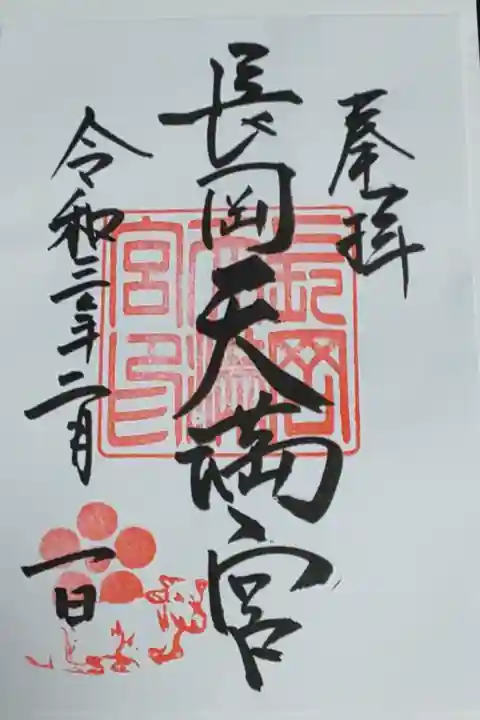 奉拝
長岡天満宮
長岡天満宮印
令和三年二月
一日